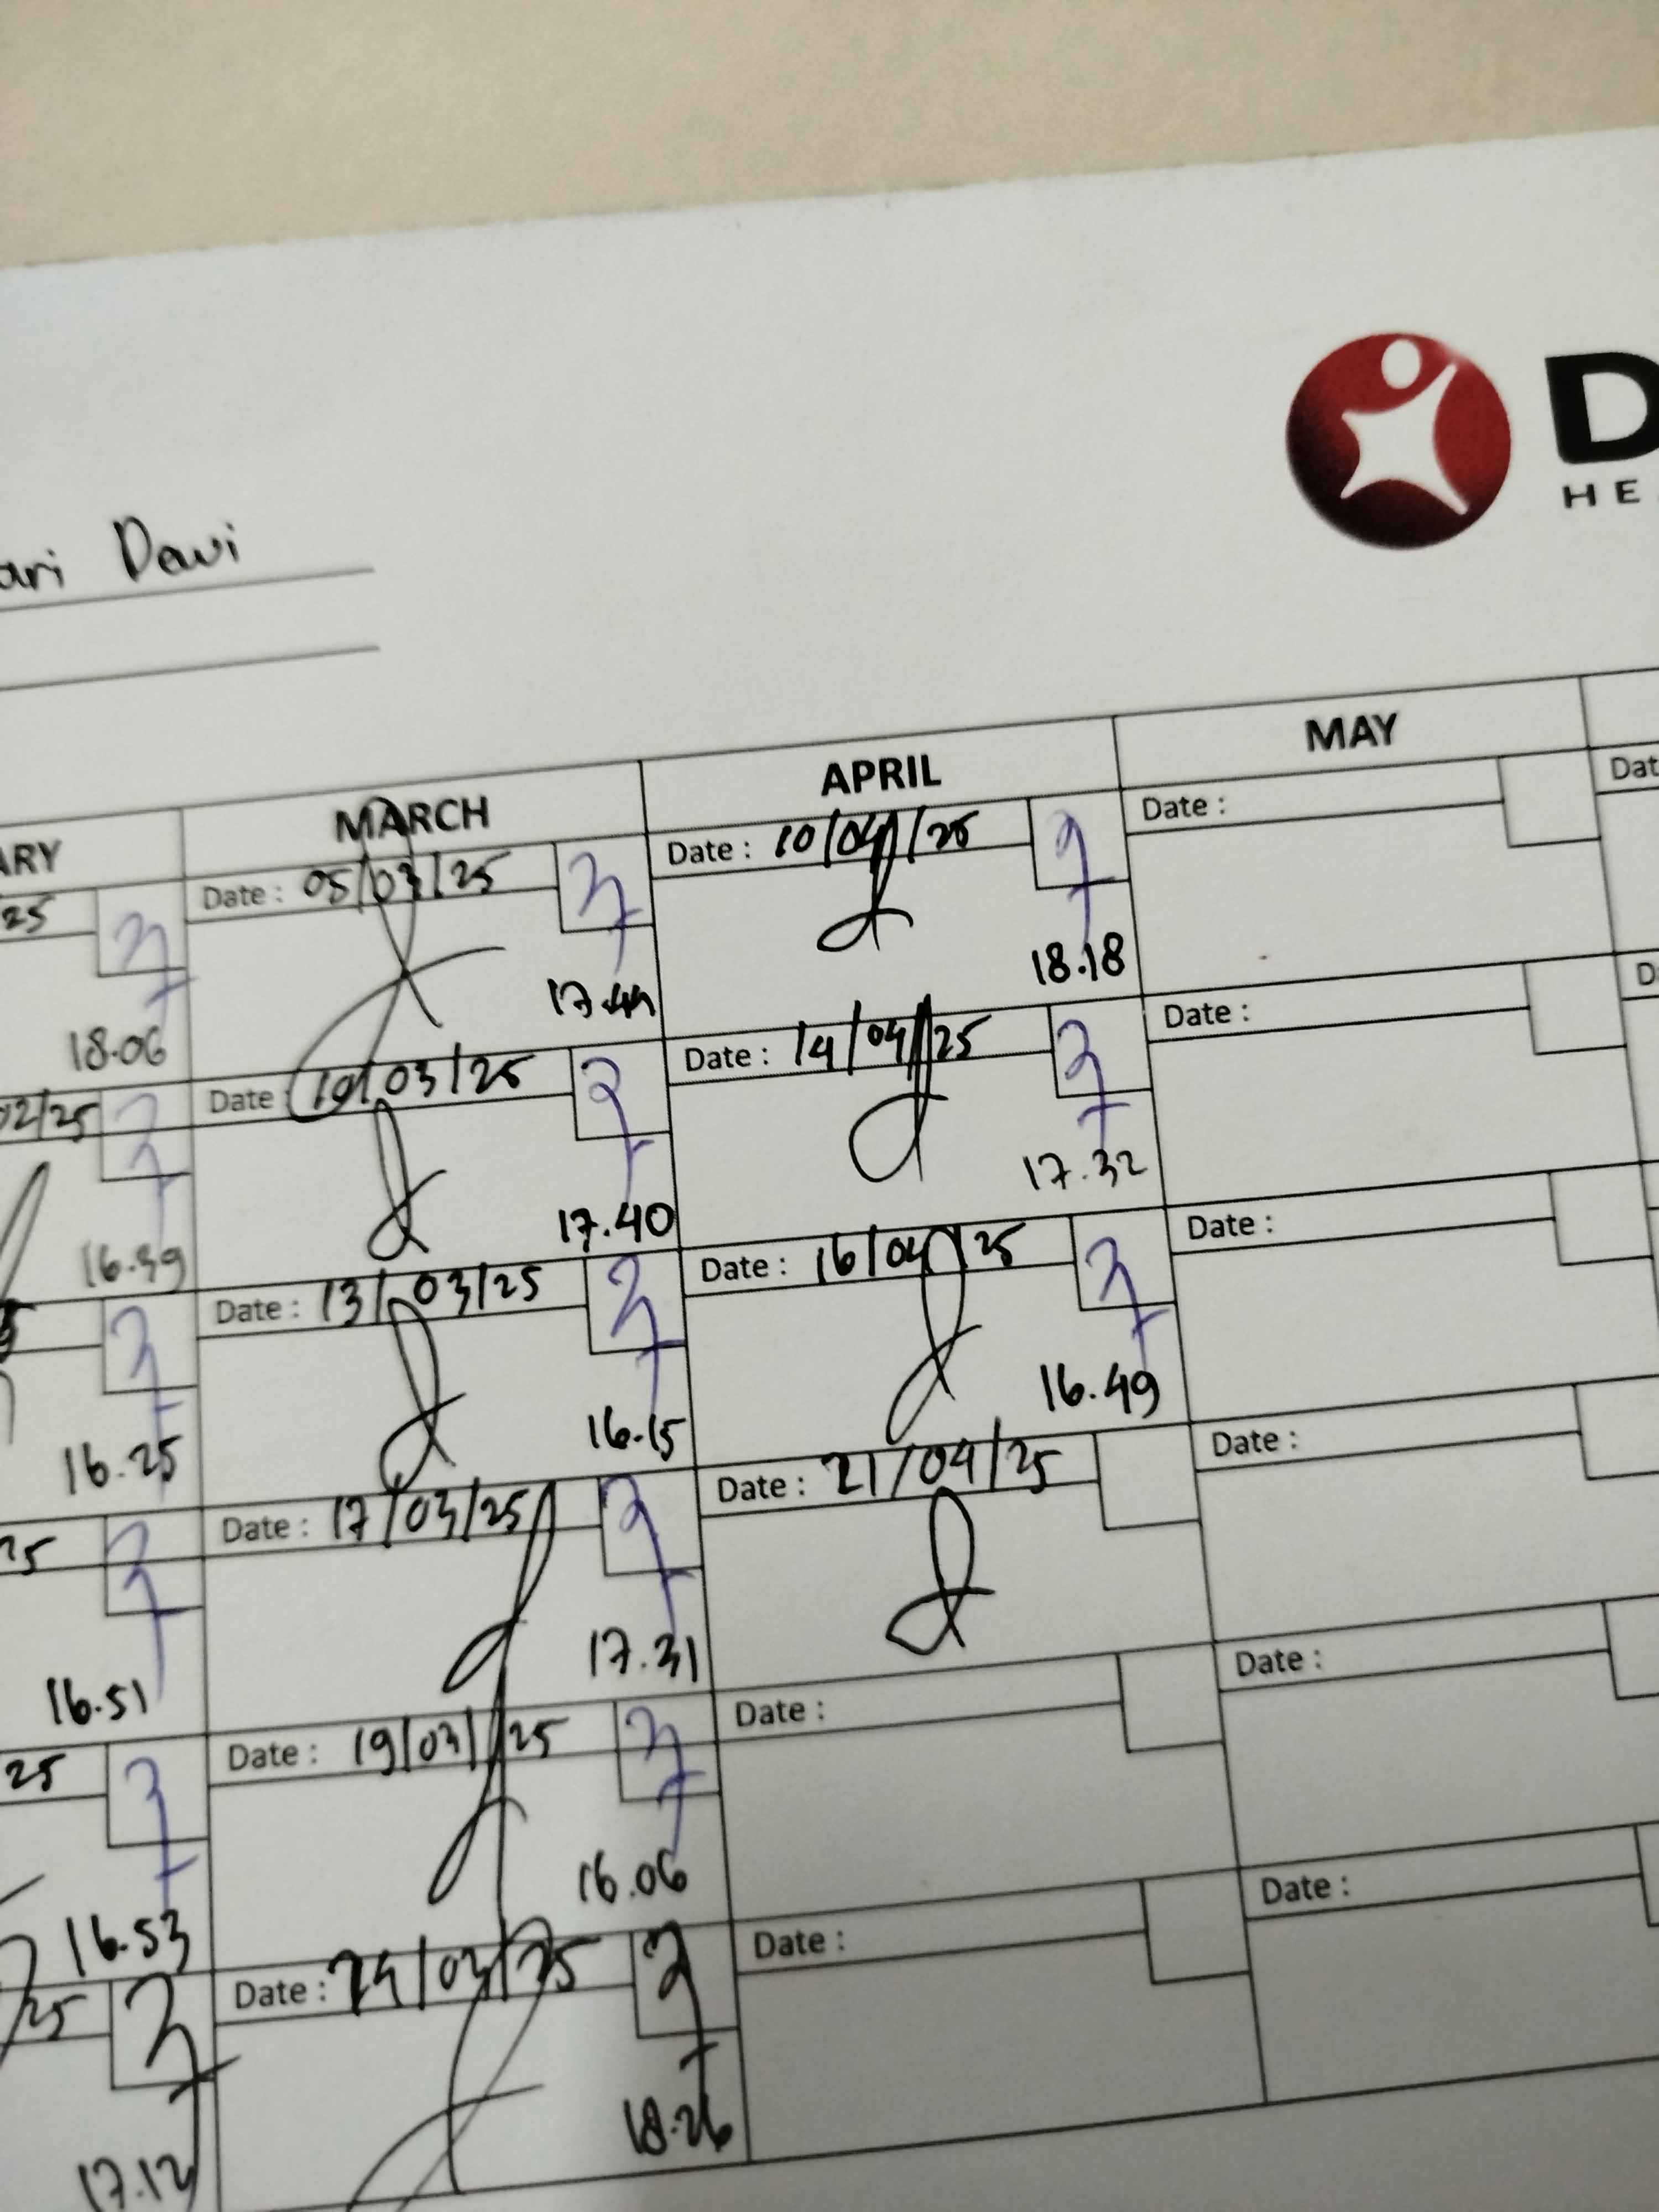 D
HE
ari Dewi
ARY
MARCH
APRIL
MAY
25
Date : 05/03/25
Date : 10/04/25
Date :
Dat
18.06
17.44
18.18
02/25
Date 10/03/25
Date : 14/04/25
Date :
D
16.39
17.40
17.32
Date : 13/03/25
Date : 16/04/25
Date :
16.25
16.15
16.49
25
Date : 17/03/25
Date : 21/04/25
Date :
16.51
17.31
25
Date : 19/03/25
Date :
Date :
16.53
16.06
25
Date : 24/03/25
Date :
Date :
17.12
18.26